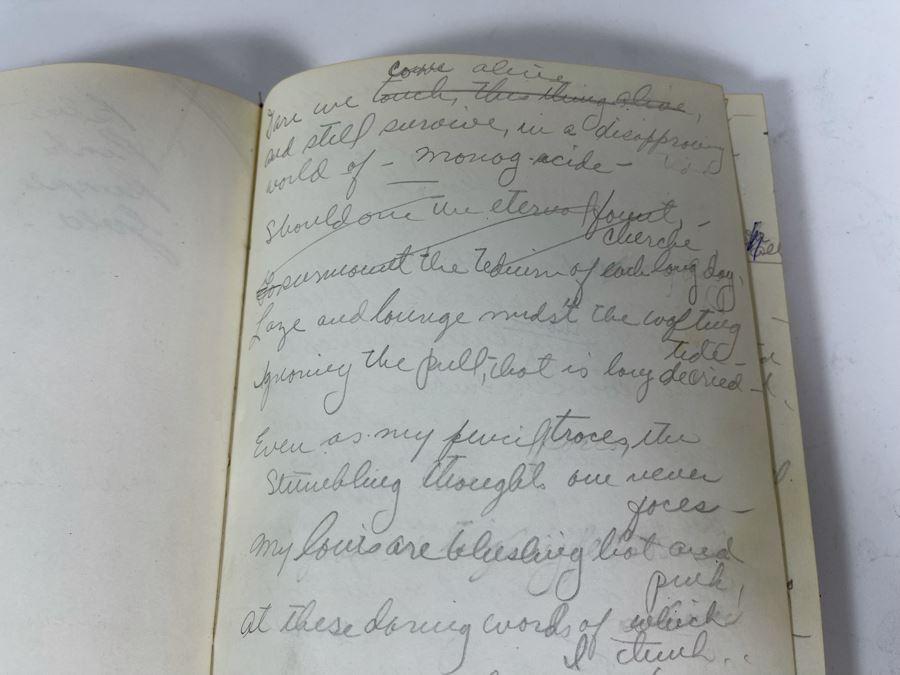 come alive
Dare we touch, this thing alive,
and still survive, in a disapproving
world of - monog-acide -
Should one the eternal fount, -
cherché
To surmount the tedium of each long day,
Laze and lounge midst the wafting
tide -
Ignoring the pull, that is long decried -
Even as my pencil traces, the
Stumbling thoughts one never
faces -
My are blushing hot and
pink,
at these daring words of which
I think..